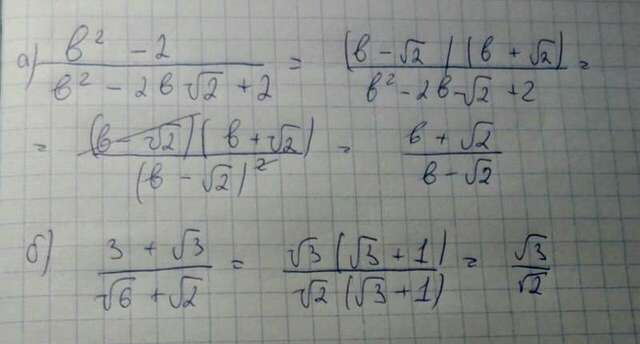 а) (b² - 2)/(b² - 2b√2 + 2) = ((b - √2)(b + √2))/(b² - 2b√2 + 2) =
= ((b - √2)(b + √2))/(b - √2)² = (b + √2)/(b - √2)
б) (3 + √3)/(√6 + √2) = (√3 (√3 + 1))/(√2 (√3 + 1)) = √3/√2